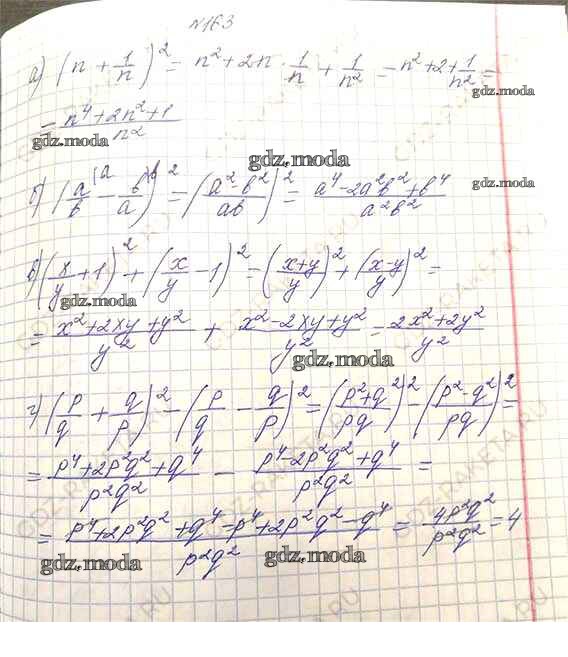 №163
а) (n + 1/n)² = n² + 2n · 1/n + 1/n² = n² + 2 + 1/n² =
gdz.moda
= (n⁴ + 2n² + 1)/n²
gdz.moda
gdz.moda
б) (a/b - b/a)² = ((a² - b²)/ab)² = (a⁴ - 2a²b² + b⁴)/a²b²
gdz.moda
в) (x/y + 1)² + (x/y - 1)² = ((x+y)/y)² + ((x-y)/y)² =
gdz.moda
= (x² + 2xy + y²)/y² + (x² - 2xy + y²)/y² = (2x² + 2y²)/y²
gdz.moda
г) (p/q + q/p)² - (p/q - q/p)² = ((p² + q²)/pq)² - ((p² - q²)/pq)² =
= (p⁴ + 2p²q² + q⁴)/p²q² - (p⁴ - 2p²q² + q⁴)/p²q² =
= (p⁴ + 2p²q² + q⁴ - p⁴ + 2p²q² - q⁴)/p²q² = 4p²q²/p²q² = 4
gdz.moda
gdz.moda